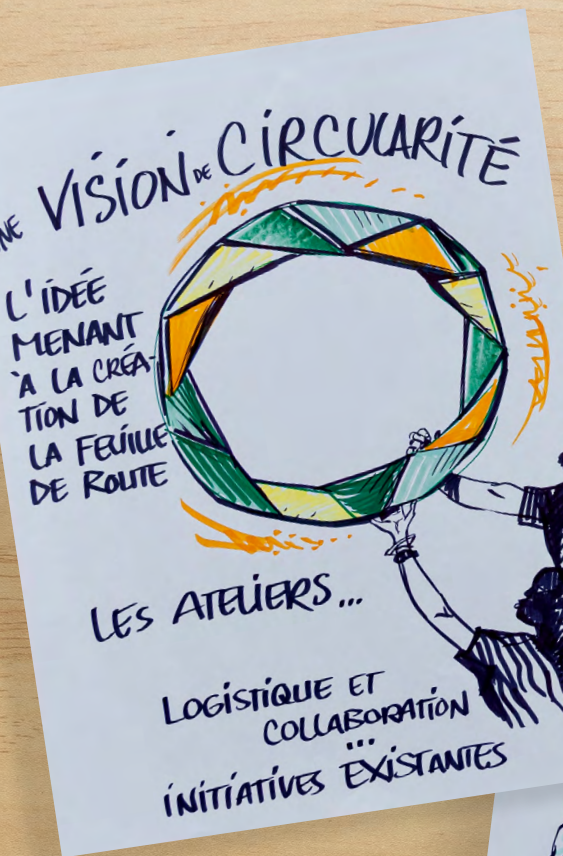 NE VISION DE CIRCULARITÉ
L'IDÉE
MENANT
À LA CRÉA-
TION DE
LA FEUILLE
DE ROUTE
LES ATELIERS...
LOGISTIQUE ET
COLLABORATION
...
INITIATIVES EXISTANTES